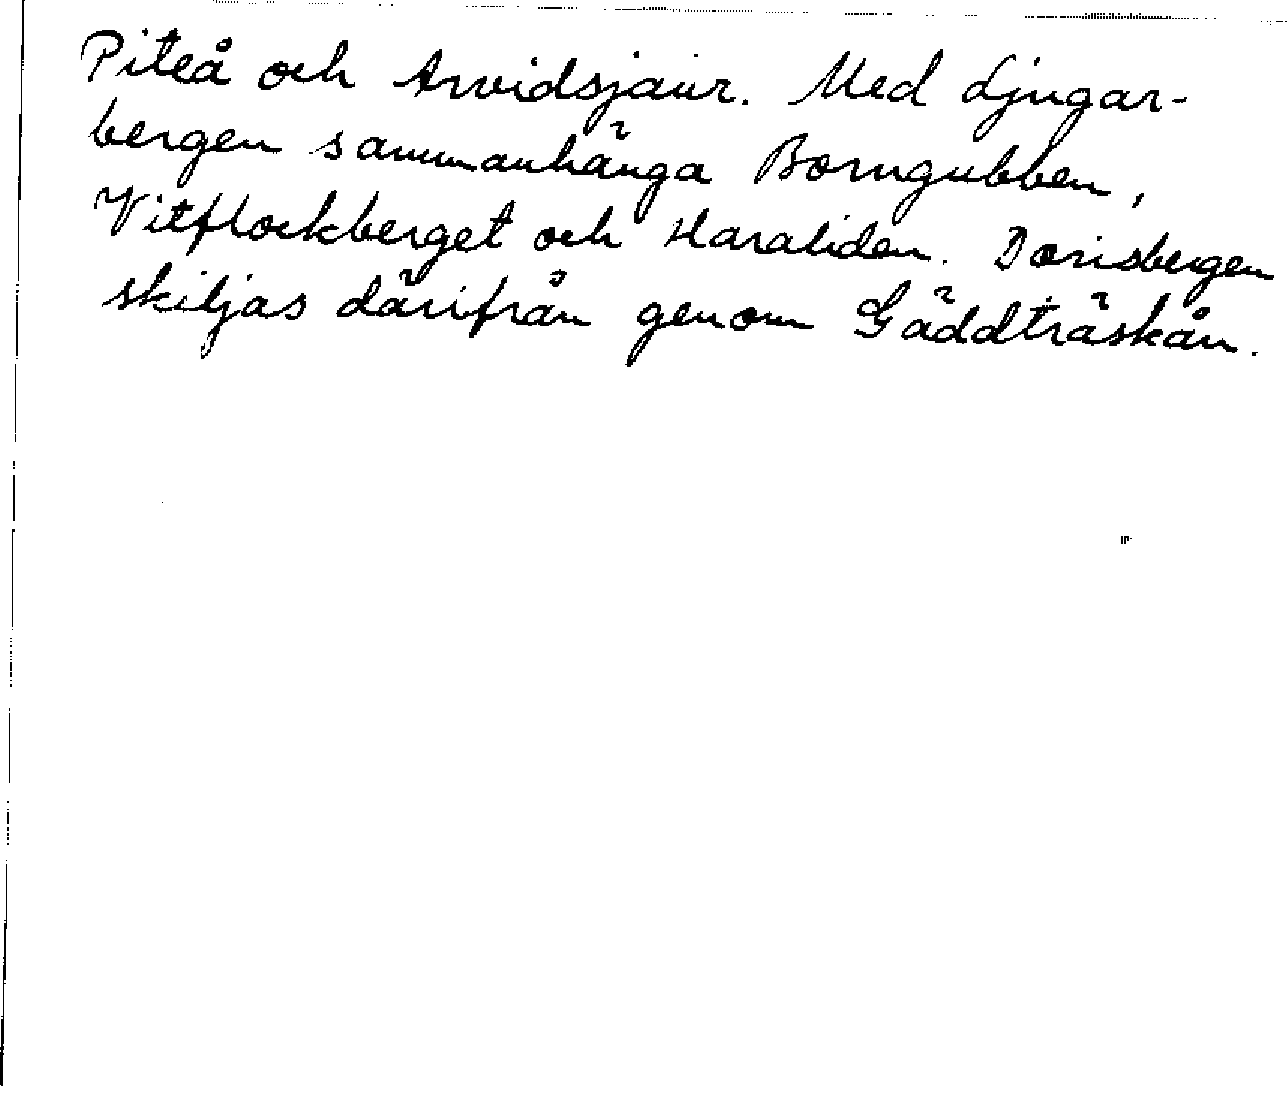 Piteå och Arvidsjaur. Med Ljugar-
bergen sammanhänga Borngubben,
Vitflockberget och Haraliden. Dorisbergen
skiljas därifrån genom Gäddträskån.